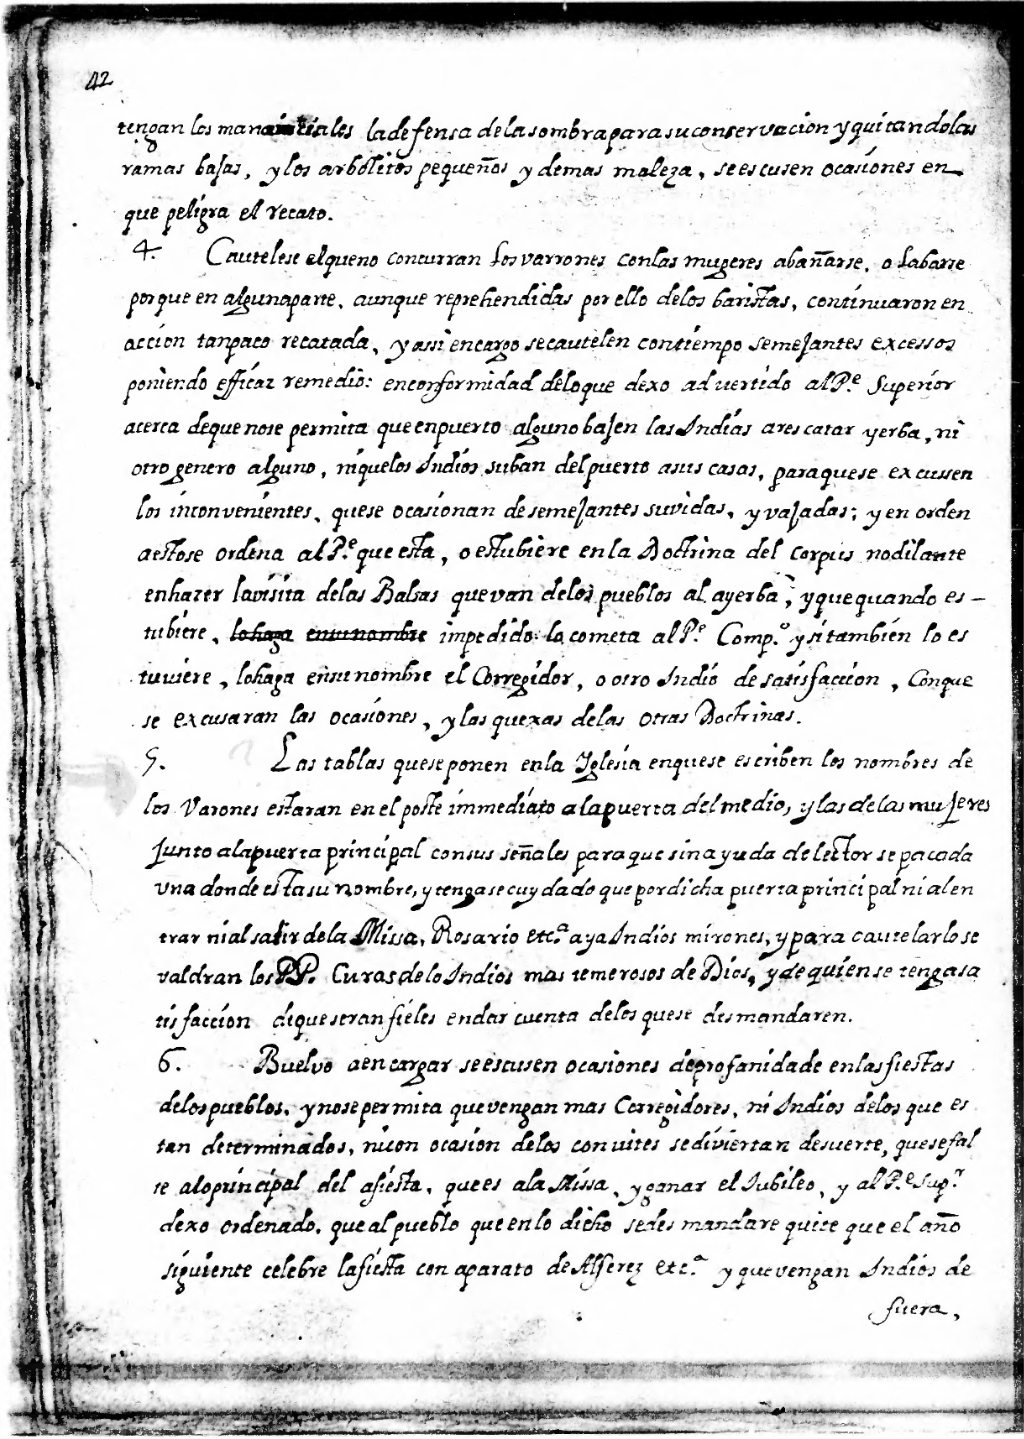 42
tengan los manantiales la defensa de la sombra para su conservacion y quitando las
ramas bajas, y los arbolitos pequeños y demas maleza, se escusen ocasiones en
que peligra el recato.
4. Cautelese el que no concurran los varrones con las mugeres a bañarse, o labarse
porque en alguna parte, aunque reprehendidas por ello de los baristas, continuaron en
accion tan poco recatada, y assi encargo se cautelen con tiempo semejantes excessos
poniendo efficaz remedio: en conformidad de lo que dexo advertido al Pe. Superior
acerca de que no se permita que en puerto alguno bajen las Indias a rescatar yerba, ni
otro genero alguno, ni que los Indios suban del puerto a sus casas, para que se excussen
los inconvenientes, que se ocasionan de semejantes suvidas, y vajadas; y en orden
a esto se ordena al Pe. que esta, o estubiere en la Doctrina del Corpus no dilante
en hazer la visita de las Balsas que van de los pueblos al a yerba, y que quando es-
tubiere, lo haga en su nombre impedido lo cometa al Pe. Compo. y si tambien lo es
tuviere, lo haga en su nombre el Corregidor, o otro Indio de satisfaccion, Con que
se excusaran las ocasiones, y las quexas de las otras Doctrinas.
5. Las tablas que se ponen en la Iglesia en que se escriben los nombres de
los Varones estaran en el poste immediato a la puerta del medio, y las de las mujeres
junto a la puerta principal con sus señales para que sin ayuda de lector sepa cada
una donde esta su nombre, y tengase cuydado que por dicha puerta principal ni al en
trar ni al salir de la Missa, Rosario etca. aya Indios mirones, y para cautelarlo se
valdran los PP. Curas de lo Indios mas temerosos de Dios, y de quien se tenga sa
tisfaccion de que seran fieles en dar cuenta de los que se desmandaren.
6. Buelvo a encargar se escusen ocasiones de profanidad en las fiestas
de los pueblos, y no se permita que vengan mas Corregidores, ni Indios de los que es
tan determinados, ni con ocasion de los convites se diviertan de suerte, que se fal
te a lo principal del a fiesta, que es a la Missa, y ganar el Iubileo, y al Pe. Supr.
dexo ordenado, que al pueblo que en lo dicho se desmandare quite que el año
siguiente celebre la fiesta con aparato de Alferez etca. y que vengan Indios de
fuera,